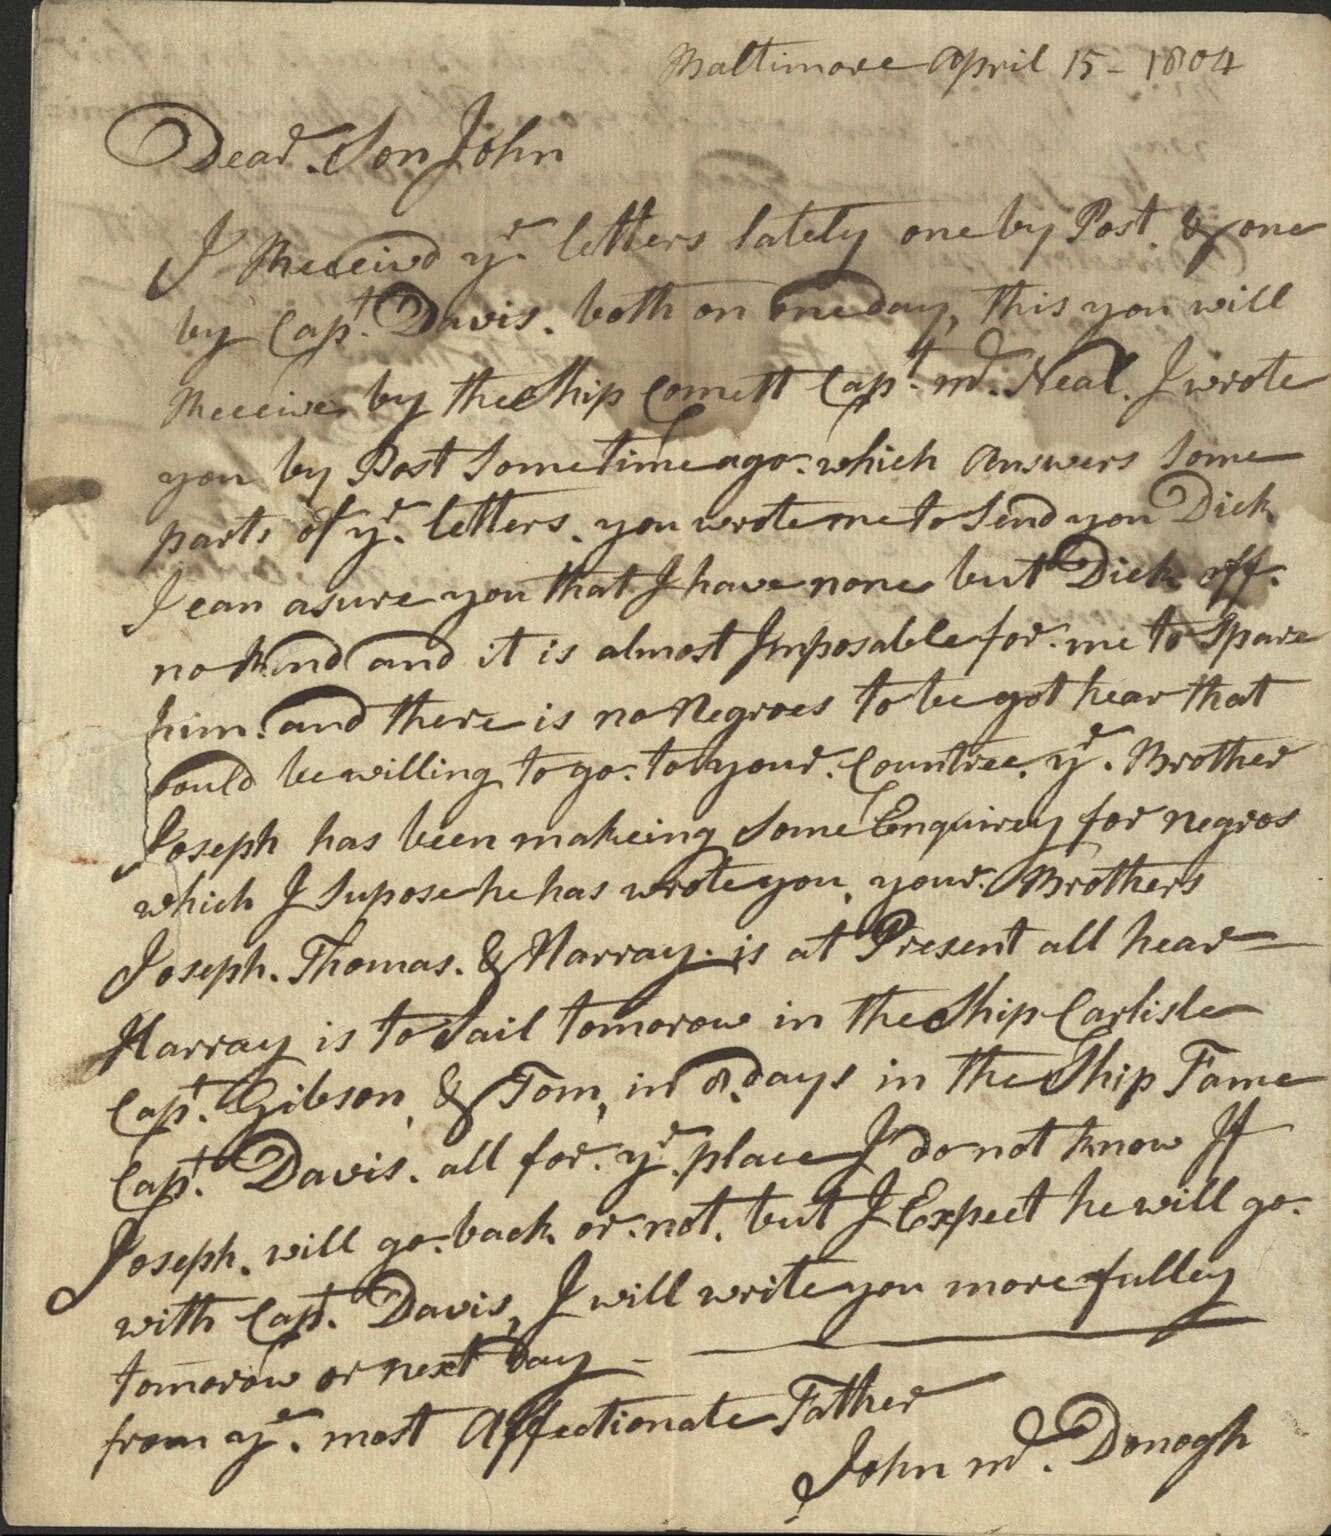 Baltimore April 15 - 1804
Dear Son John
I Receivd yr. letters lately one by Post & one
by Capt. Davis. both on one day, this you will
Receive by the Ship Comett Capt. Md. Neal. I wrote
you by Post Some time ago. which Answers Some
parts of yr. letters. you wrote me to Send you Dick
I can asure you that I have none but Dick off.
no Kind and it is almost Imposable for me to Spare
him. and there is no Negroes to be got hear that
would be willing to go. to your. Countree. yr. Brother
Joseph has been makeing Some Enquirey for negros
which I Supose he has wrote you, your. Brothers
Joseph. Thomas. & Harray. is at Present all hear
Harray is to Sail tomorow in the Ship Carlisle
Capt. Gibson, & Tom, in days in the Ship Fame
Capt. Davis. all for. yr. place I do not know If
Joseph. will go. back. or. not. but I Expect he will go.
with Capt. Davis, I will write you more fulley
tomorow or next Day -
from yr. most Affectionate Father
John Md. Donogh